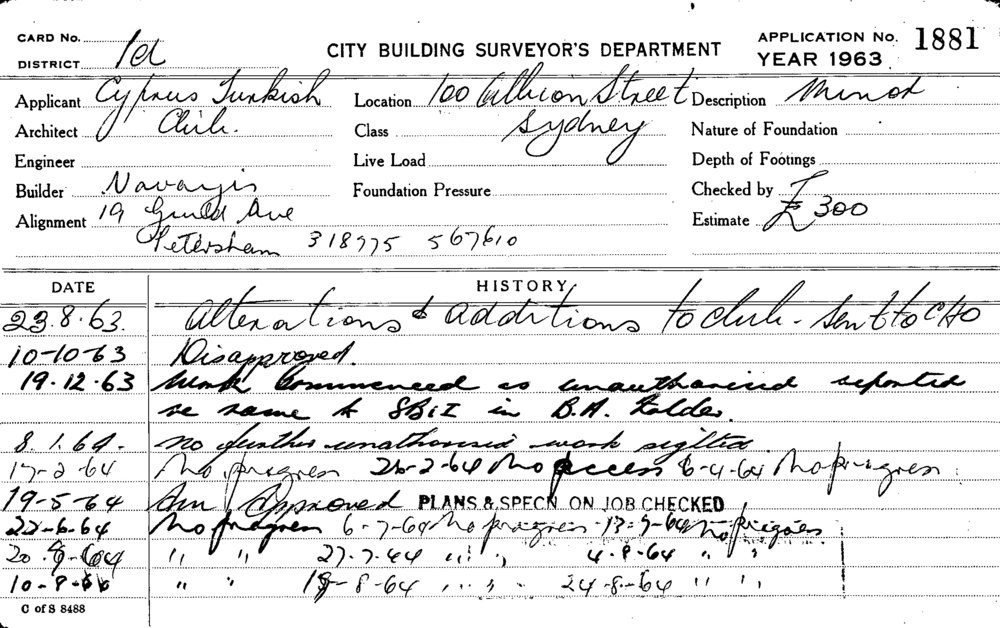 CARD No.
DISTRICT 1d
CITY BUILDING SURVEYOR'S DEPARTMENT
APPLICATION No. 1881
YEAR 1963
Applicant Cyprus Turkish
Location 100 Albion Street
Description Minor
Architect Club.
Class Sydney
Nature of Foundation
Engineer
Live Load
Depth of Footings
Builder Navargis
Foundation Pressure
Checked by
Alignment 19 Gould Ave
Estimate £300
Petersham 318775 567610
DATE
HISTORY
23.8.63. Alterations & additions to club - sent to CHO
10-10-63 Disapproved.
19.12.63 Work commenced is unauthorised reported
re same to SBI in B.A. Folder.
8.1.64. No further unathorised work sighted.
17-2-64 No progress 26-2-64 No access 6-4-64 No progress
19-5-64 Approved PLANS & SPECN ON JOB CHECKED
22-6-64 No progress 6-7-64 No progress 13-7-64 No progress
20.7.64 " " 27-7-64 " " 4.8-64 " "
10-8-64 " " 18-8-64 " " 24-8-64 " "
C of S 8488